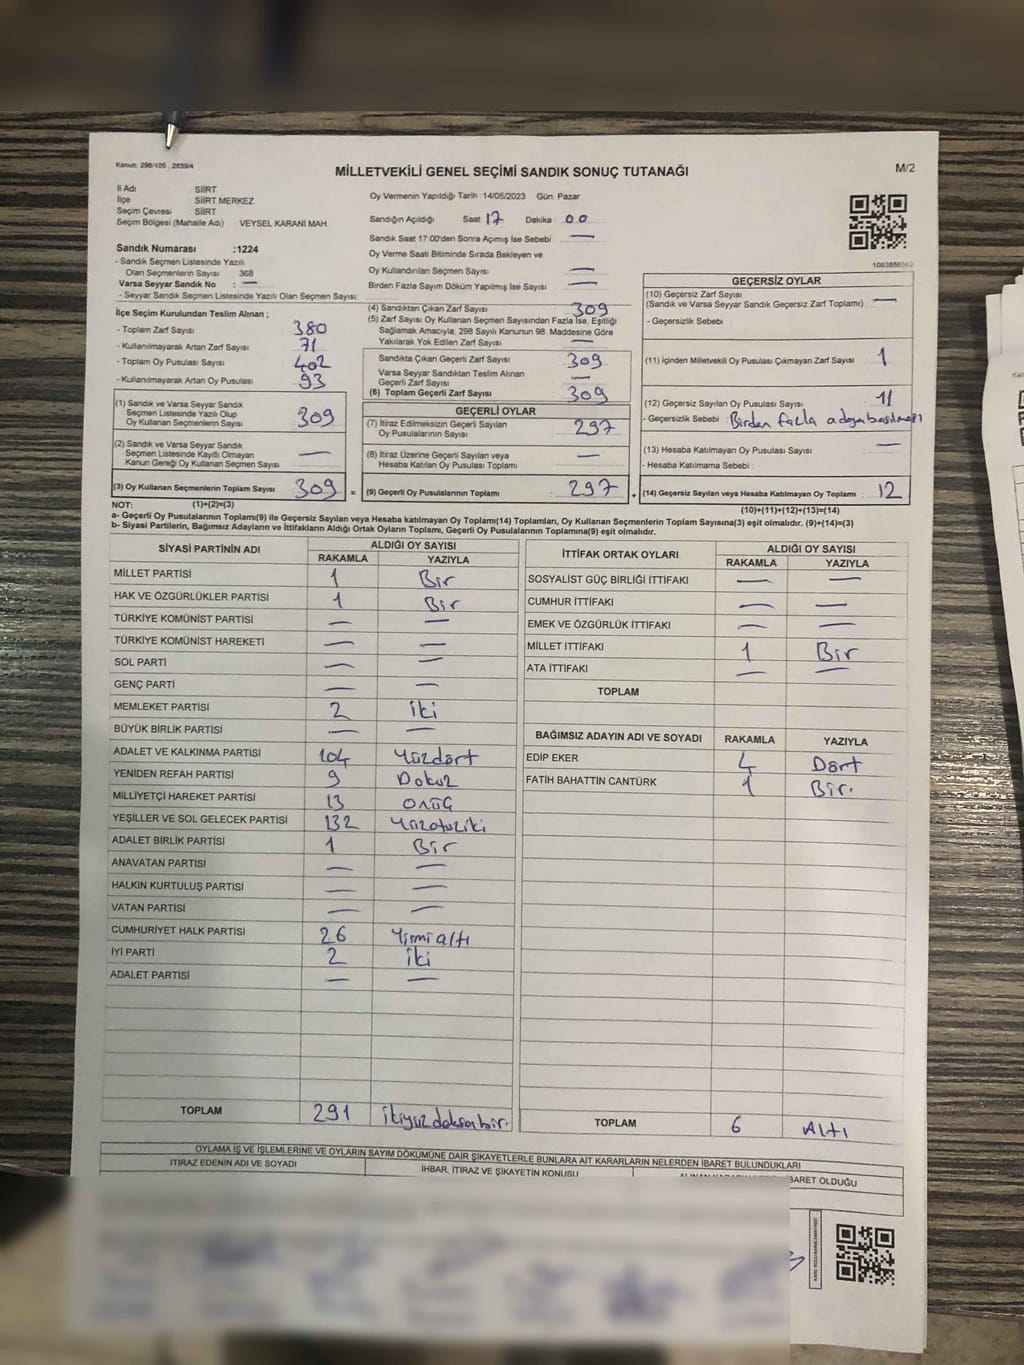 Kanun: 298/105 , 2839/4
MİLLETVEKİLİ GENEL SEÇİMİ SANDIK SONUÇ TUTANAĞI
M/2
İl Adı : SİİRT
İlçe : SİİRT MERKEZ
Seçim Çevresi : SİİRT
Seçim Bölgesi (Mahalle Adı) : VEYSEL KARANİ MAH.
Sandık Numarası :1224
- Sandık Seçmen Listesinde Yazılı
Olan Seçmenlerin Sayısı : 368
Varsa Seyyar Sandık No : —
- Seyyar Sandık Seçmen Listesinde Yazılı Olan Seçmen Sayısı:
İlçe Seçim Kurulundan Teslim Alınan ;
- Toplam Zarf Sayısı : 380
- Kullanılmayarak Artan Zarf Sayısı : 71
- Toplam Oy Pusulası Sayısı : 402
- Kullanılmayarak Artan Oy Pusulası : 93
(1) Sandık ve Varsa Seyyar Sandık
Seçmen Listesinde Yazılı Olup
Oy Kullanan Seçmen Sayısı : 309
(2) Sandık ve Varsa Seyyar Sandık
Seçmen Listesinde Kayıtlı Olmayan
Kanun Gereği Oy Kullanan Seçmen Sayısı : —
(3) Oy Kullanan Seçmenlerin Toplam Sayısı : 309 =
Oy Vermenin Yapıldığı Tarih : 14/05/2023 Gün: Pazar
Sandığın Açıldığı Saat 17 Dakika : 00
Sandık Saat 17:00'den Sonra Açılmış İse Sebebi : —
Oy Verme Saati Bitiminde Sırada Bekleyen ve
Oy Kullandırılan Seçmen Sayısı : —
Birden Fazla Sayım Döküm Yapılmış İse Sayısı : —
(4) Sandıktan Çıkan Zarf Sayısı : 309
(5) Zarf Sayısı Oy Kullanan Seçmen Sayısından Fazla İse, Eşitliği
Sağlamak Amacıyla, 298 Sayılı Kanunun 98. Maddesine Göre
Yakılarak Yok Edilen Zarf Sayısı : —
Sandıkta Çıkan Geçerli Zarf Sayısı : 309
Varsa Seyyar Sandıktan Teslim Alınan
Geçerli Zarf Sayısı : —
(6) Toplam Geçerli Zarf Sayısı : 309
GEÇERLİ OYLAR
(7) İtiraz Edilmeksizin Geçerli Sayılan
Oy Pusulalarının Sayısı : 297
(8) İtiraz Üzerine Geçerli Sayılan veya
Hesaba Katılan Oy Pusulası Toplamı : —
(9) Geçerli Oy Pusulalarının Toplamı : 297 +
GEÇERSİZ OYLAR
(10) Geçersiz Zarf Sayısı
(Sandık ve Varsa Seyyar Sandık Geçersiz Zarf Toplamı) : —
- Geçersizlik Sebebi :
(11) İçinden Milletvekili Oy Pusulası Çıkmayan Zarf Sayısı : 1
(12) Geçersiz Sayılan Oy Pusulası Sayısı : 11
- Geçersizlik Sebebi : Birden fazla adaya basılması
(13) Hesaba Katılmayan Oy Pusulası Sayısı : —
- Hesaba Katılmama Sebebi :
(14) Geçersiz Sayılan veya Hesaba Katılmayan Oy Toplamı : 12
NOT: (1)+(2)=(3)
(10)+(11)+(12)+(13)=(14)
a- Geçerli Oy Pusulalarının Toplamı(9) ile Geçersiz Sayılan veya Hesaba katılmayan Oy Toplamı(14) Toplamları, Oy Kullanan Seçmenlerin Toplam Sayısına(3) eşit olmalıdır. (9)+(14)=(3)
b- Siyasi Partilerin, Bağımsız Adayların ve İttifakların Aldığı Ortak Oyların Toplamı, Geçerli Oy Pusulalarının Toplamına(9) eşit olmalıdır.
SİYASİ PARTİNİN ADI ALDIĞI OY SAYISI
RAKAMLA YAZIYLA
MİLLET PARTİSİ 1 Bir
HAK VE ÖZGÜRLÜKLER PARTİSİ 1 Bir
TÜRKİYE KOMÜNİST PARTİSİ — —
TÜRKİYE KOMÜNİST HAREKETİ — —
SOL PARTİ — —
GENÇ PARTİ — —
MEMLEKET PARTİSİ 2 iki
BÜYÜK BİRLİK PARTİSİ — —
ADALET VE KALKINMA PARTİSİ 104 Yüzdört
YENİDEN REFAH PARTİSİ 9 Dokuz
MİLLİYETÇİ HAREKET PARTİSİ 13 onüç
YEŞİLLER VE SOL GELECEK PARTİSİ 132 Yüzotuziki
ADALET BİRLİK PARTİSİ 1 Bir
ANAVATAN PARTİSİ — —
HALKIN KURTULUŞ PARTİSİ — —
VATAN PARTİSİ — —
CUMHURİYET HALK PARTİSİ 26 Yirmialtı
İYİ PARTİ 2 iki
ADALET PARTİSİ — —
TOPLAM 291 ikiyüzdoksanbir.
İTTİFAK ORTAK OYLARI ALDIĞI OY SAYISI
RAKAMLA YAZIYLA
SOSYALİST GÜÇ BİRLİĞİ İTTİFAKI — —
CUMHUR İTTİFAKI — —
EMEK VE ÖZGÜRLÜK İTTİFAKI — —
MİLLET İTTİFAKI 1 Bir
ATA İTTİFAKI — —
TOPLAM
BAĞIMSIZ ADAYIN ADI VE SOYADI RAKAMLA YAZIYLA
EDİP EKER 4 Dört
FATİH BAHATTİN CANTÜRK 1 Bir.
TOPLAM 6 Altı
OYLAMA İŞ VE İŞLEMLERİNE VE OYLARIN SAYIM DÖKÜMÜNE DAİR ŞİKAYETLERLE BUNLARA AİT KARARLARIN NELERDEN İBARET BULUNDUKLARI
İTİRAZ EDENİN ADI VE SOYADI İHBAR, İTİRAZ VE ŞİKAYETİN KONUSU BARET OLDUĞU